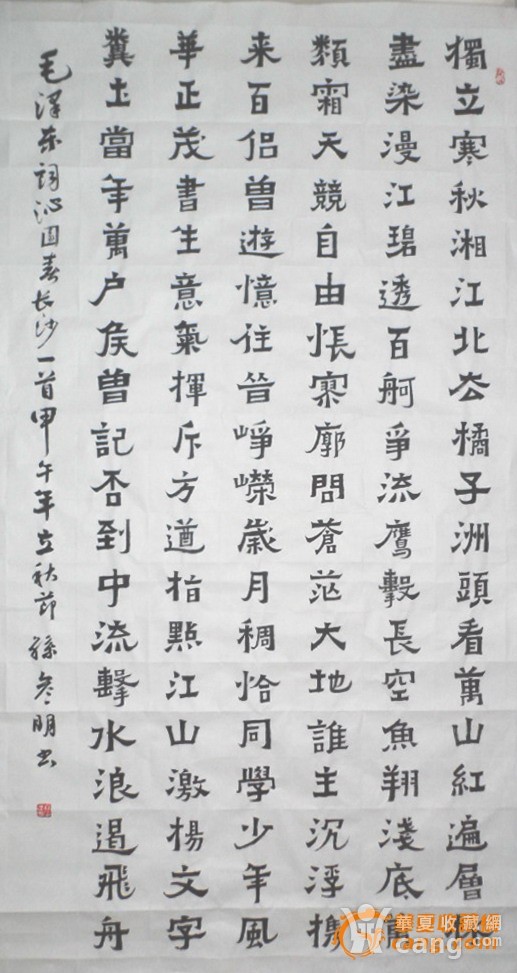 獨立寒秋湘江北去橘子洲頭看萬山紅遍層林
盡染漫江碧透百舸爭流鷹擊長空魚翔淺底萬
類霜天競自由悵寥廓問蒼茫大地誰主沉浮攜
来百侣曾遊憶往昔崢嶸歲月稠恰同學少年風
華正茂書生意氣揮斥方遒指點江山激揚文字
糞土當年萬户侯曾記否到中流擊水浪遏飛舟
毛澤东词沁园春长沙一首甲午年立秋节孫明书
華夏收藏網
cang.com